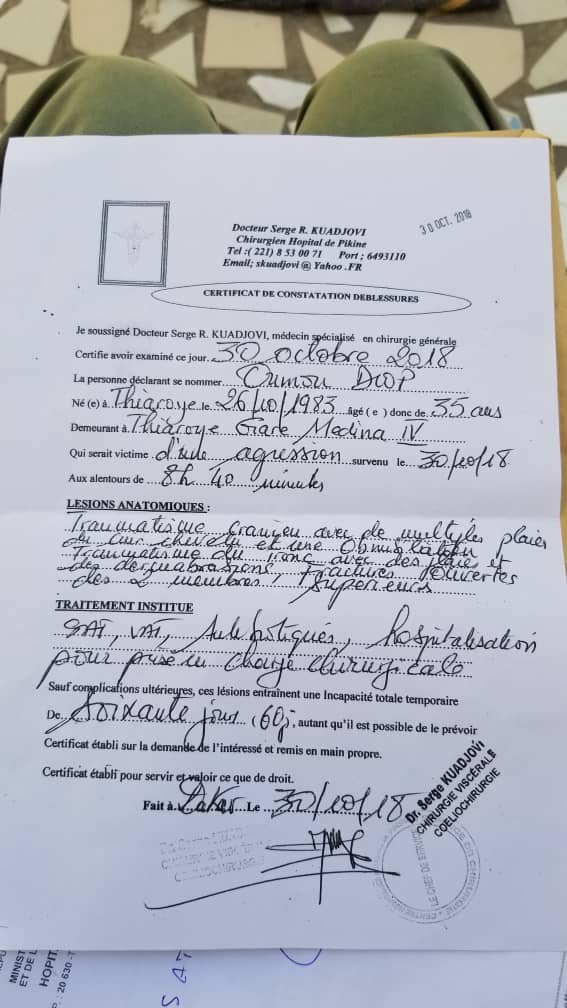 30 OCT. 2018
Docteur Serge R. KUADJOVI
Chirurgien Hopital de Pikine
Tel :( 221) 8 53 00 71 Port ; 6493110
Email; skuadjovi @ Yahoo .FR
CERTIFICAT DE CONSTATATION DEBLESSURES
Je soussigné Docteur Serge R. KUADJOVI, médecin spécialisé en chirurgie générale
Certifie avoir examiné ce jour. 30 octobre 2018
La personne déclarant se nommer.... Oumou DIOP
Né (e) à.. Thiaroye le 26/10/1983 âgé ( e ) donc de. 35 ans
Demeurant à Thiaroye Gare Medina IV
Qui serait victime d'une agression survenu le 30/10/18
Aux alentours de 8h 40 minutes
LESIONS ANATOMIQUES :
Traumatisme cranien avec de multiples plaies
du cuir chevelu et une
Traumatisme du tronc avec des plaies et
des dermabrasions, Fractures ouvertes
des 2 membres supérieurs
TRAITEMENT INSTITUE
SAT, VAT, Antibiotiques, hospitalisation
pour prise en charge chirurgicale
Sauf complications ultérieures, ces lésions entraînent une Incapacité totale temporaire
De.. Soixante jours (60), autant qu'il est possible de le prévoir
Certificat établi sur la demande de l'intéressé et remis en main propre.
Certificat établi pour servir et valoir ce que de droit.
Fait à Dakar Le 30/10/18
Dr. Serge KUADJOVI
CHIRURGIE VISCÉRALE
COELIOCHIRURGIE
MINIST
ET DE L
HOPIT